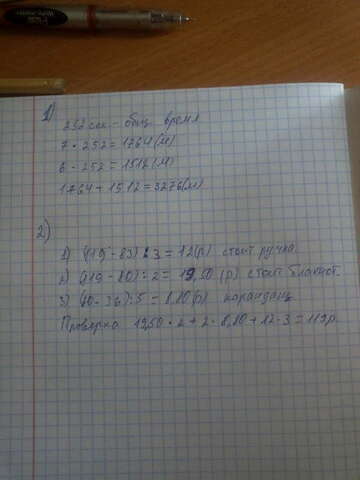 1)
252 сек - общ. время
7 · 252 = 1764 (м)
6 - 252 = 1512 (м)
1764 + 1512 = 3276 (м)
2)
1) (119 - 83) : 3 = 12 (р) стоит ручка.
2) (119 - 80) : 2 = 19,50 (р) стоит блакнот.
3) (40 - 36) : 5 = 0,80 (р) карандаш
Проверка 19,50 · 2 + 2 · 0,80 + 12 · 3 = 119 р.